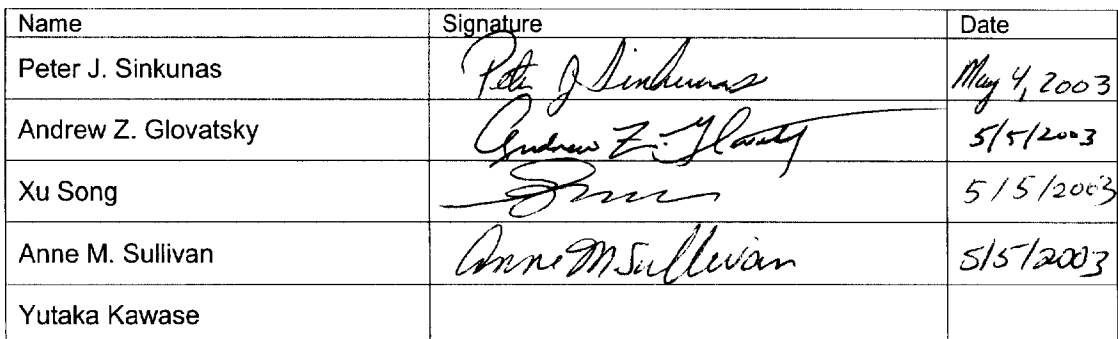 Name Signature Date
Peter J. Sinkunas Peter J Sinkunas May 4, 2003
Andrew Z. Glovatsky Andrew Z. Glovatsky 5/5/2003
Xu Song 5/5/2003
Anne M. Sullivan Anne M Sullivan 5/5/2003
Yutaka Kawase